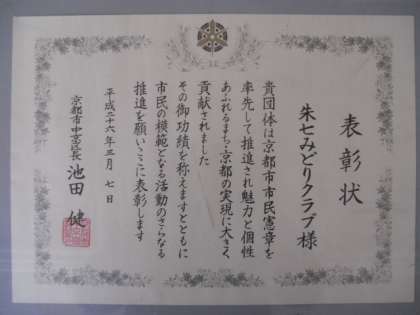 表彰状
朱七みどりクラブ様
貴団体は京都市市民憲章を
率先して推進され魅力と個性
あふれるまち・京都の実現に大きく
貢献されました
その御功績を称えますとともに
市民の模範となる活動のさらなる
推進を願いここに表彰します
平成二十六年三月七日
京都市中京区長 池田 健